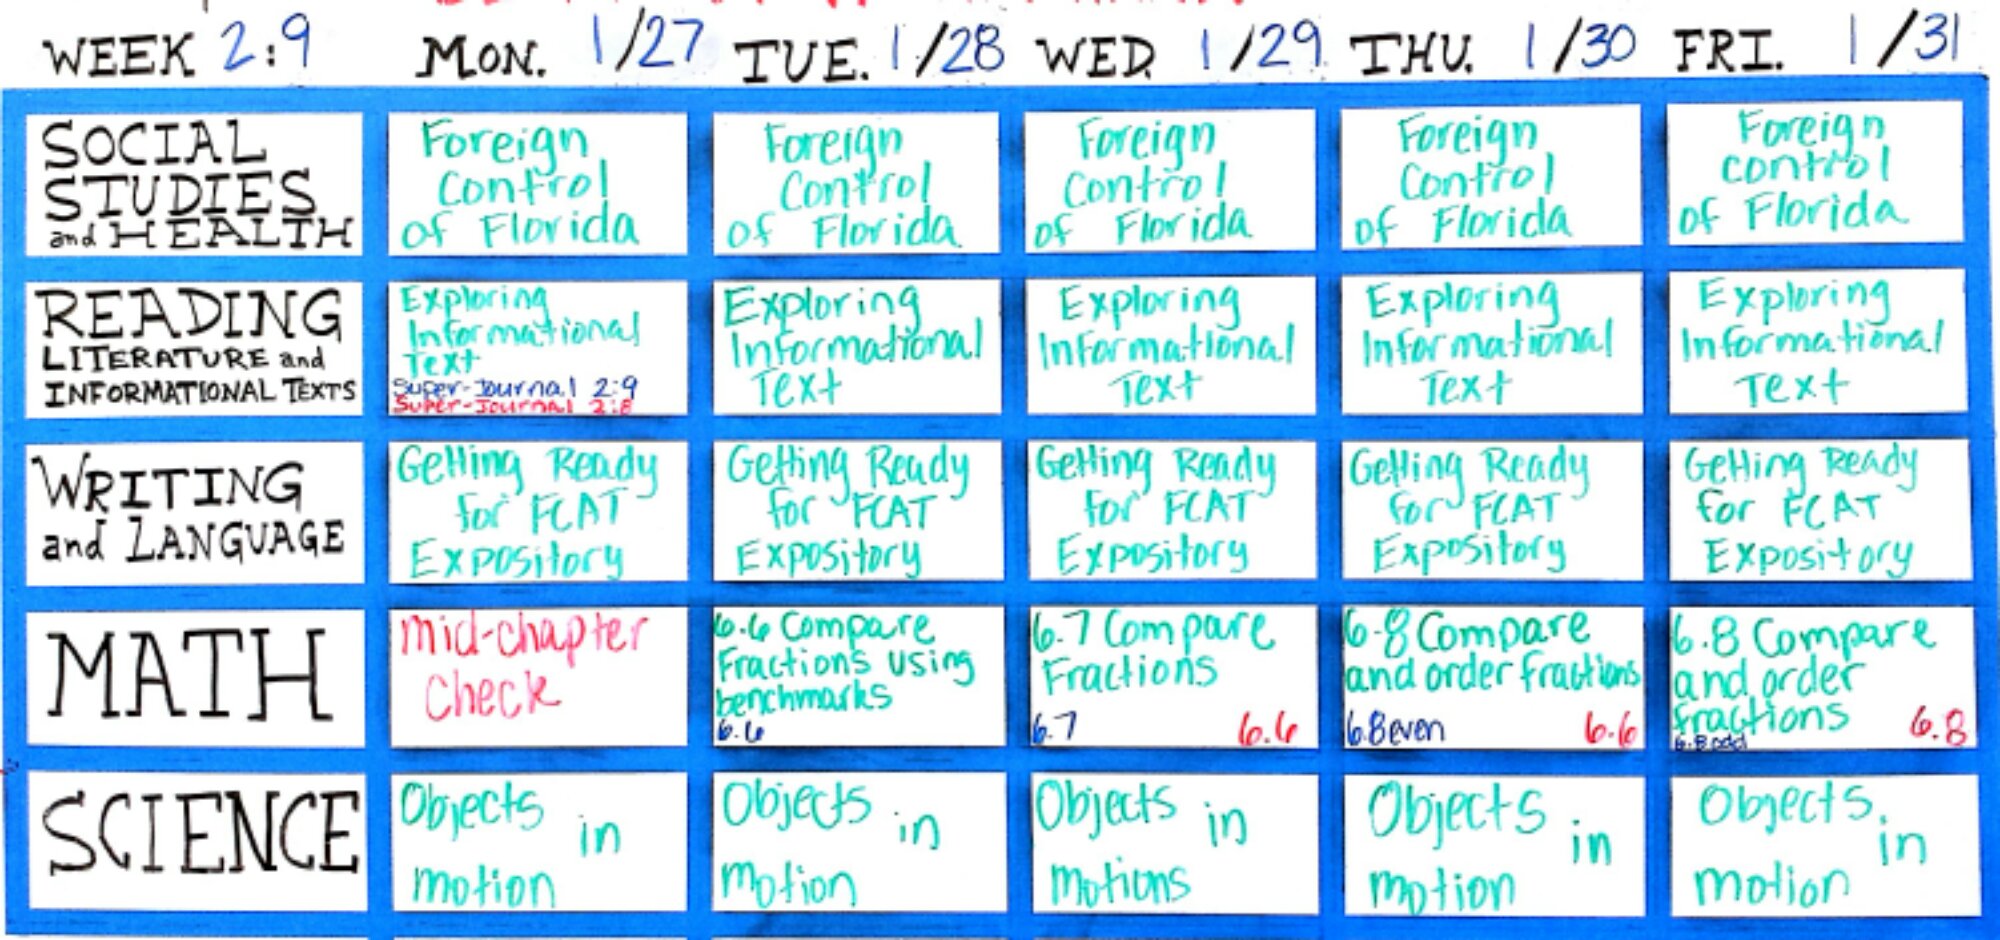 WEEK 2:9 MON. 1/27 TUE. 1/28 WED. 1/29 THU. 1/30 FRI. 1/31
SOCIAL
STUDIES
and HEALTH
Foreign
Control
of Florida
Foreign
Control
of Florida
Foreign
Control
of Florida
Foreign
Control
of Florida
Foreign
control
of Florida
READING
LITERATURE and
INFORMATIONAL TEXTS
Exploring
Informational
Text
Super-Journal 2:9
Super-Journal 2:8
Exploring
Informational
Text
Exploring
Informational
Text
Exploring
Informational
Text
Exploring
Informational
Text
WRITING
and LANGUAGE
Getting Ready
for FCAT
Expository
Getting Ready
for FCAT
Expository
Getting Ready
for FCAT
Expository
Getting Ready
for FCAT
Expository
Getting Ready
for FCAT
Expository
MATH
mid-chapter
check
6.6 Compare
Fractions using
benchmarks
6.6
6.7 Compare
Fractions
6.7 6.6
6.8 Compare
and order fractions
6.8 even 6.6
6.8 Compare
and order
fractions
6.8 odd 6.8
SCIENCE
Objects in
motion
Objects in
motion
Objects in
motions
Objects in
motion
Objects in
motion